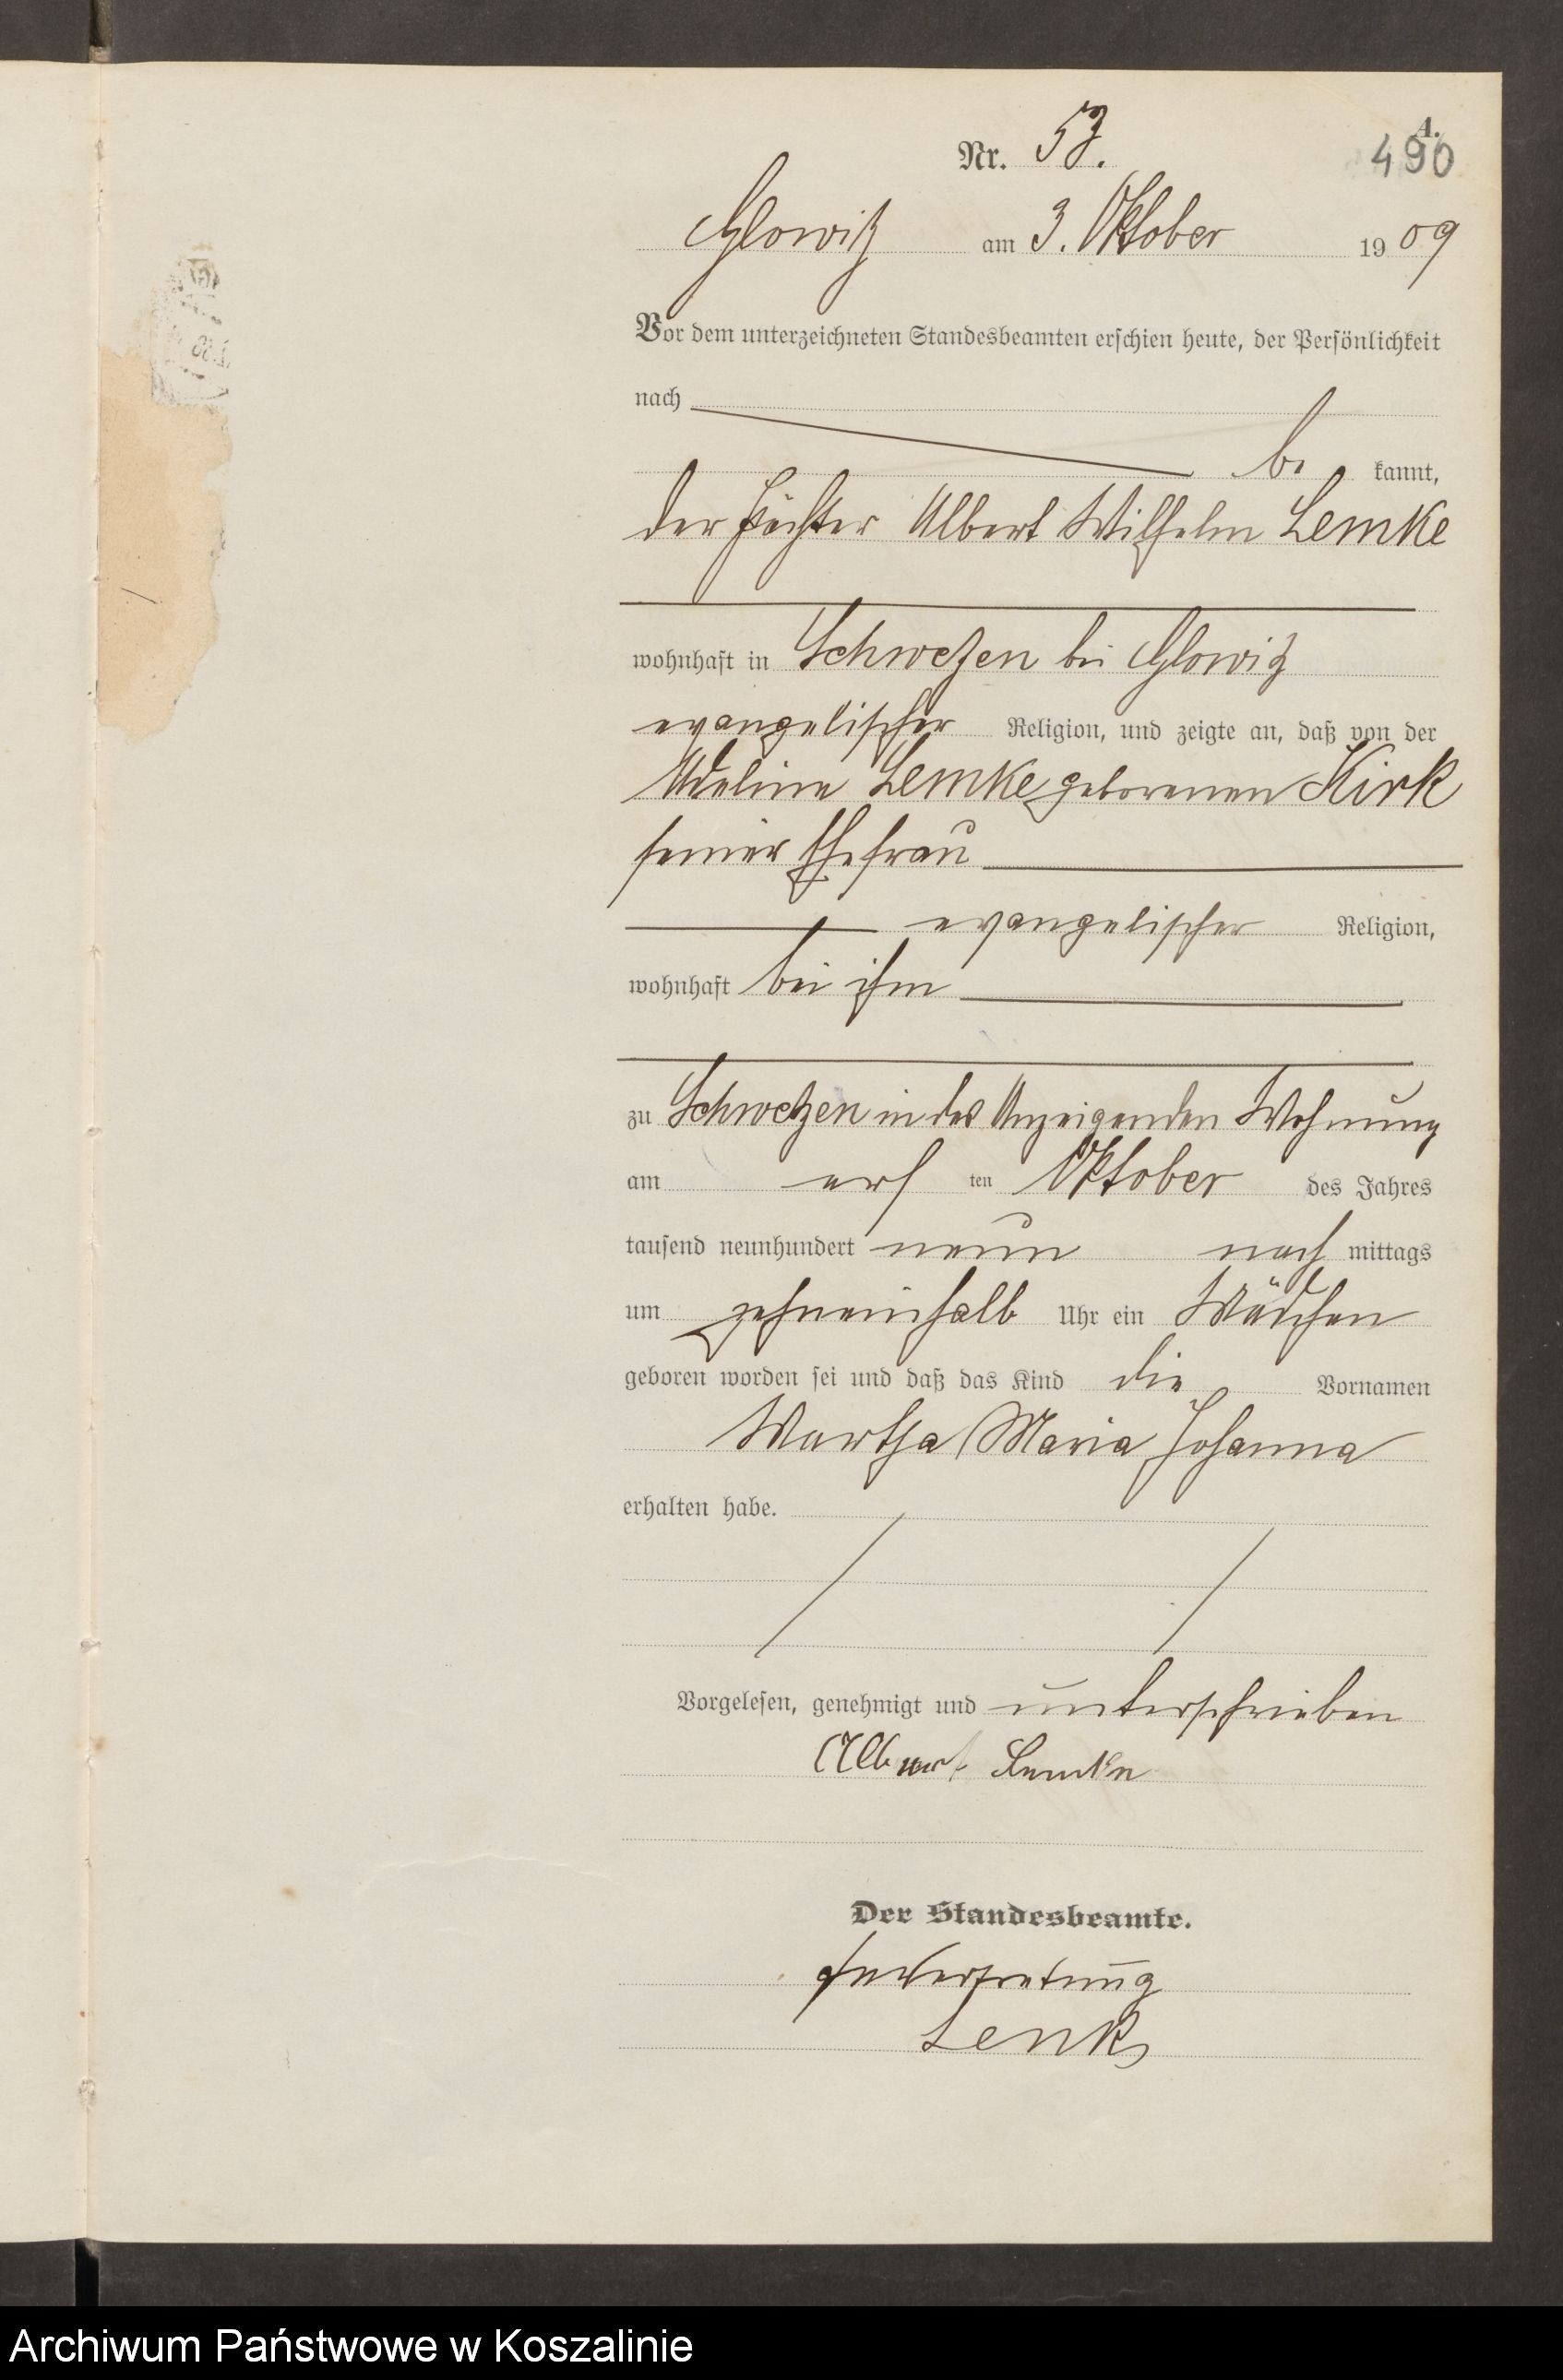 A.
Nr. 53.
490
Glowitz am 3. Oktober 1909
Vor dem unterzeichneten Standesbeamten erschien heute, der Persönlichkeit
nach
be kannt,
der Pächter Albert Wilhelm Lemke
wohnhaft in Schwetzen bei Glowitz
evangelischer Religion, und zeigte an, daß von der
Adeline Lemke geborenen Kirk
seiner Ehefrau
evangelischer Religion,
wohnhaft bei ihm
zu Schwetzen in des Anzeigenden Wohnung
am ers ten Oktober des Jahres
tausend neunhundert neun nach mittags
um zehneinhalb Uhr ein Mädchen
geboren worden sei und daß das Kind die Vornamen
Martha Maria Johanna
erhalten habe.
Vorgelesen, genehmigt und unterschrieben
Albert Lemke
Der Standesbeamte.
In Vertretung
Lenk
Archiwum Państwowe w Koszalinie